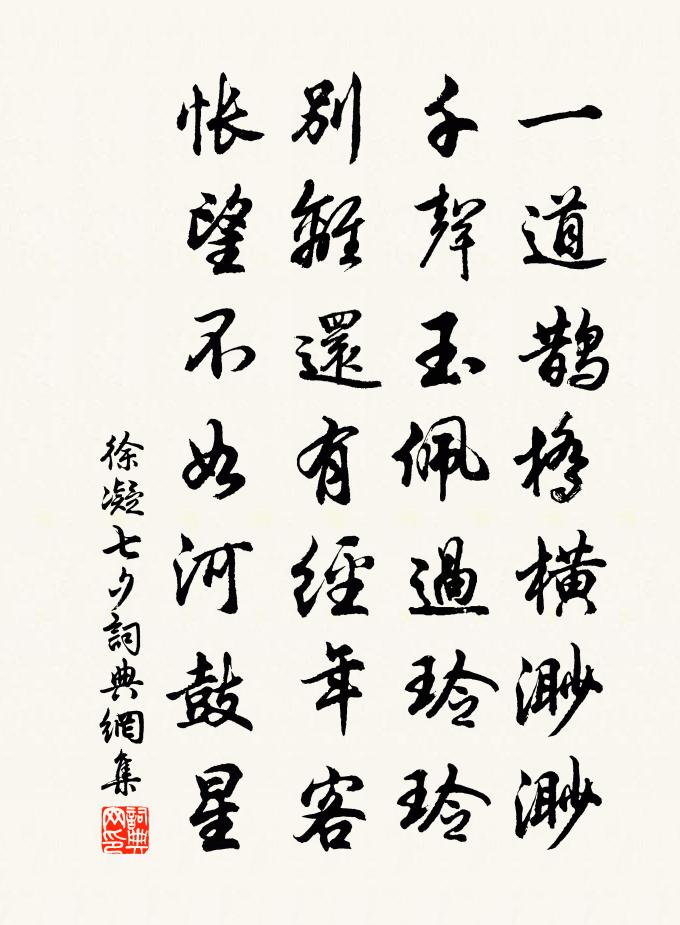 一道鵲橋橫渺渺
千聲玉佩過玲玲
別離還有經年客
悵望不如河鼓星
徐凝七夕詞典網集
詞典网印